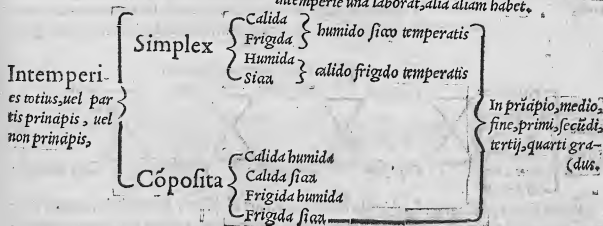 intemperie una laborat, alia aliam habet.
Intemperi-
es totius, uel par
tis principis, uel
non principis,
Simplex
Calida
Frigida
humido sicco temperatis
Humida
Sicca
calido frigido temperatis
Cōposita
Calida humida
Calida sicca
Frigida humida
Frigida sicca
In prīcipio, medio,
fine, primi, secūdi,
tertij, quarti gra-
(dus.